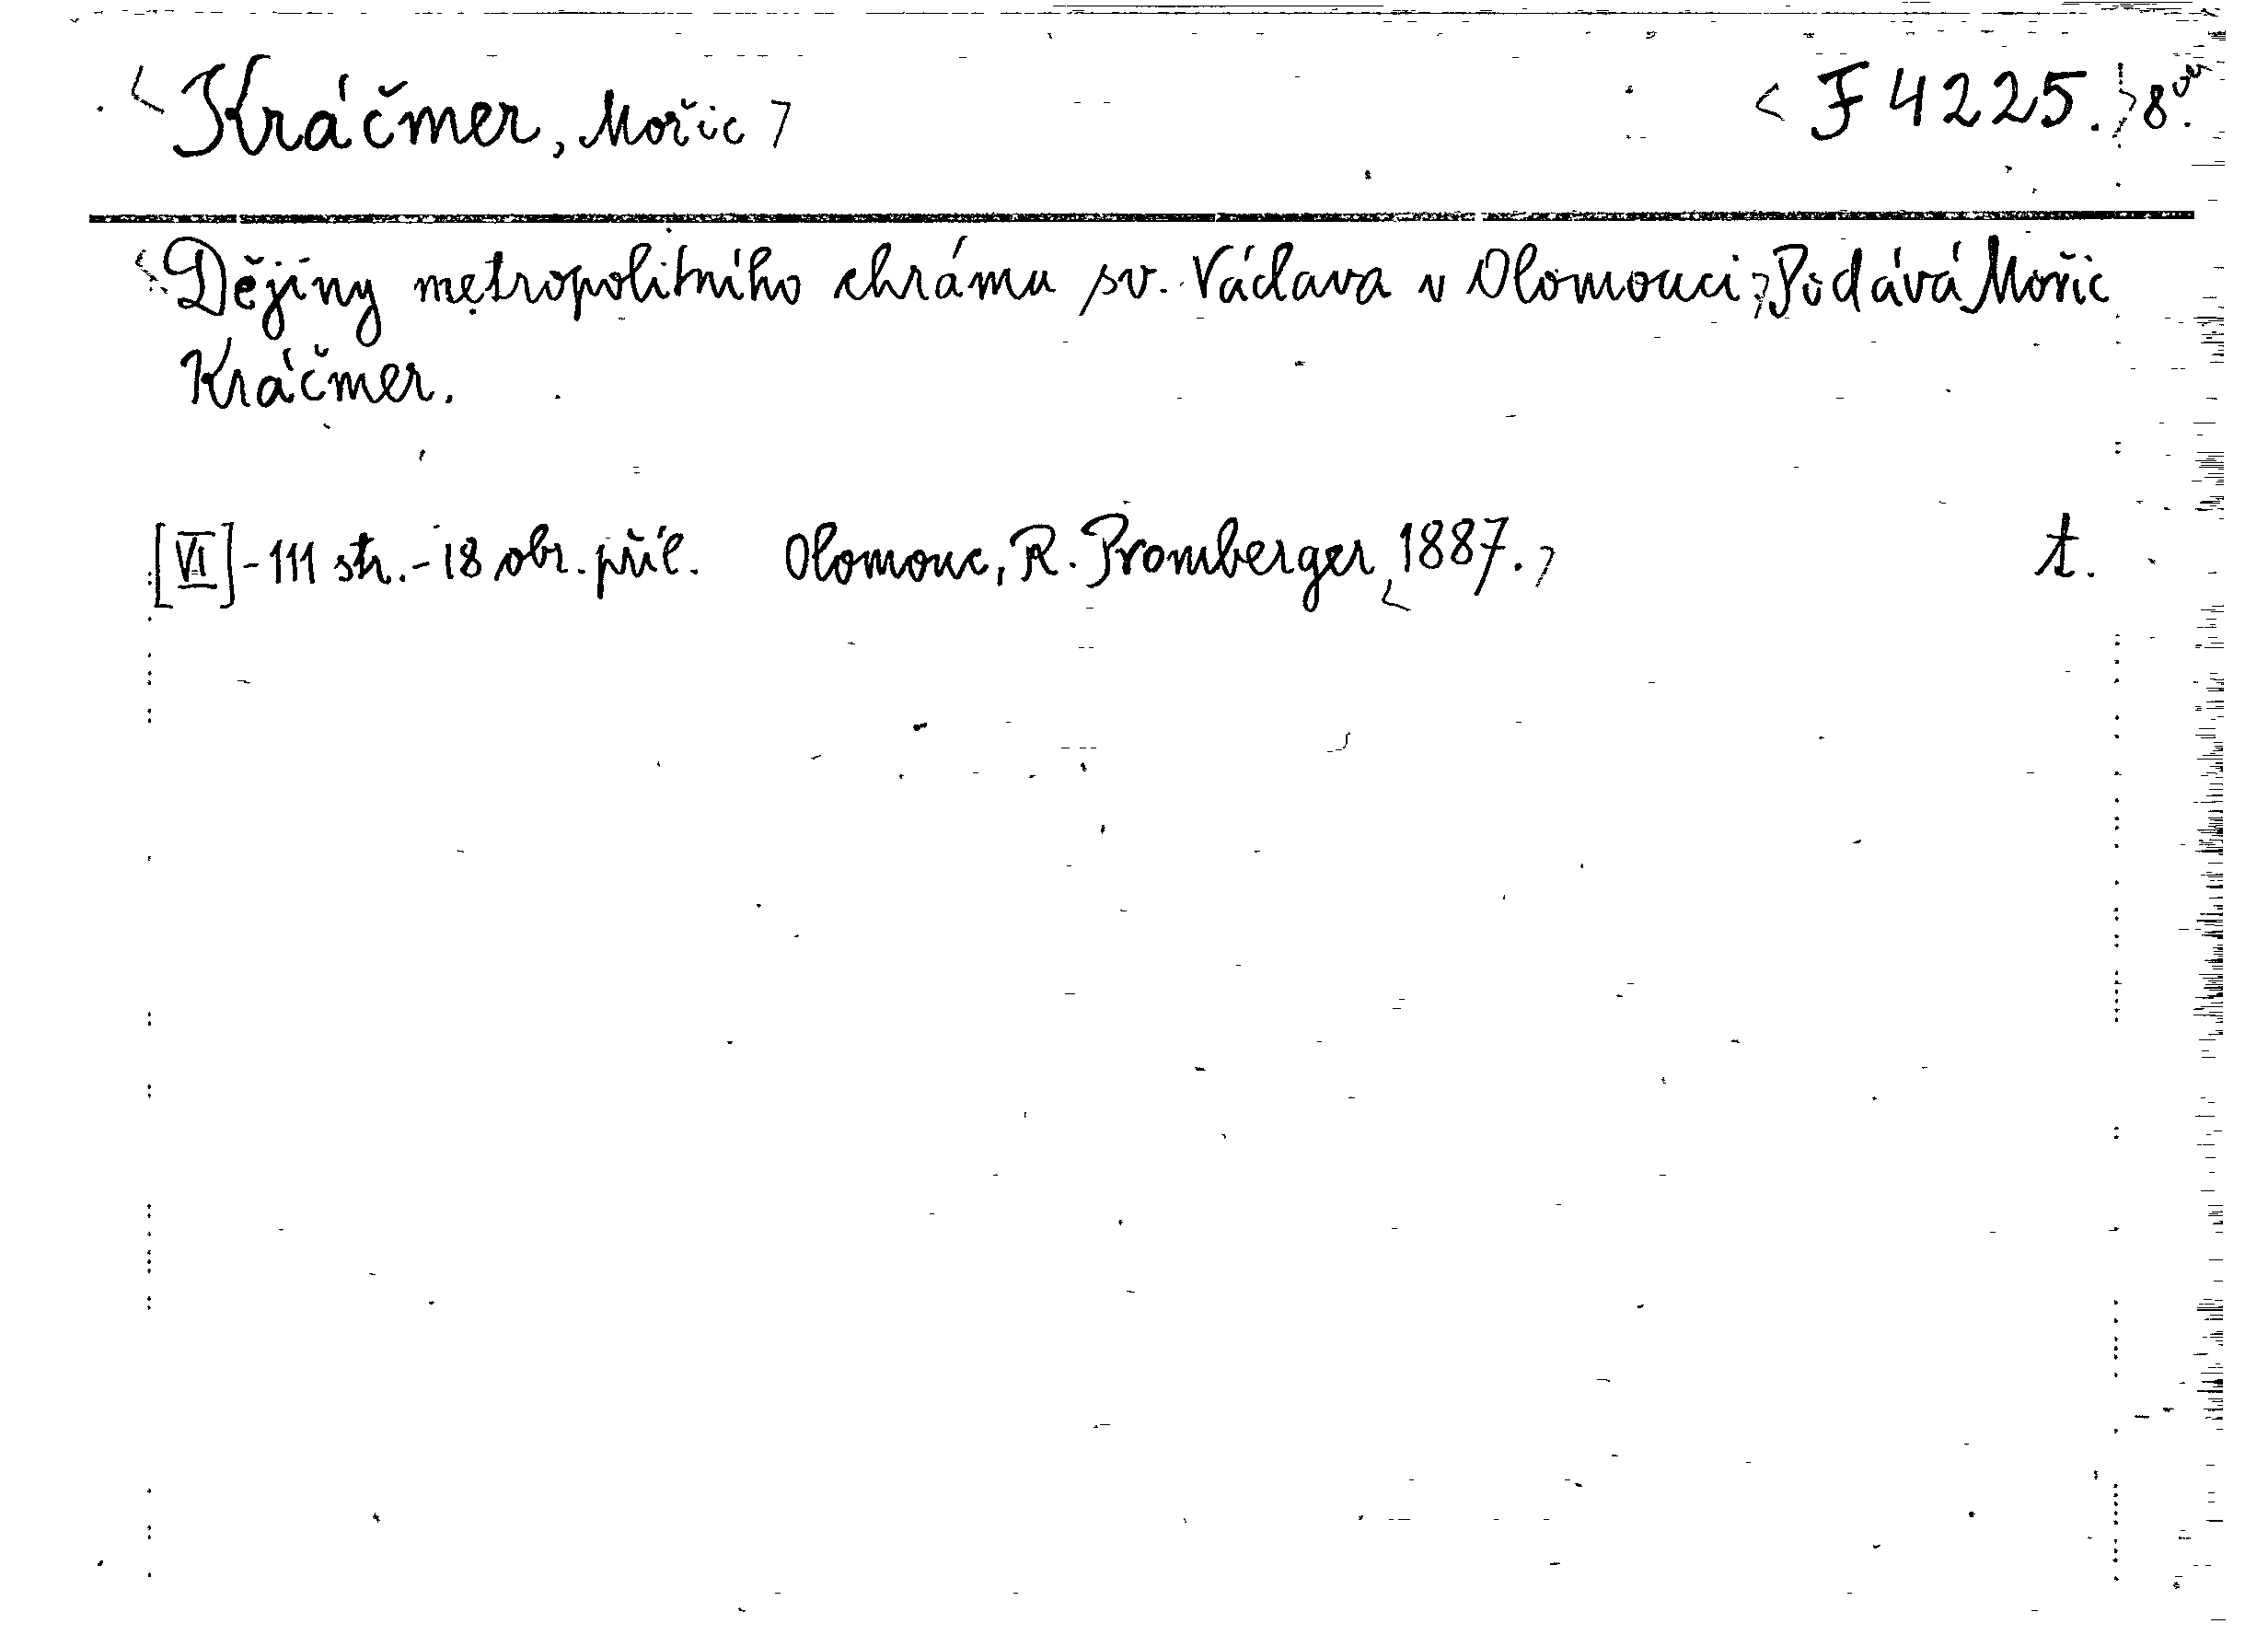 Kráčmer, Mořic F 4225. 8.
Dějiny metropolitního chrámu sv. Václava v Olomouci, Podává Mořic
Kráčmer.
[VI] - 111 str. - 18 obr. příl. Olomouc, R. Promberger, 1887. t.